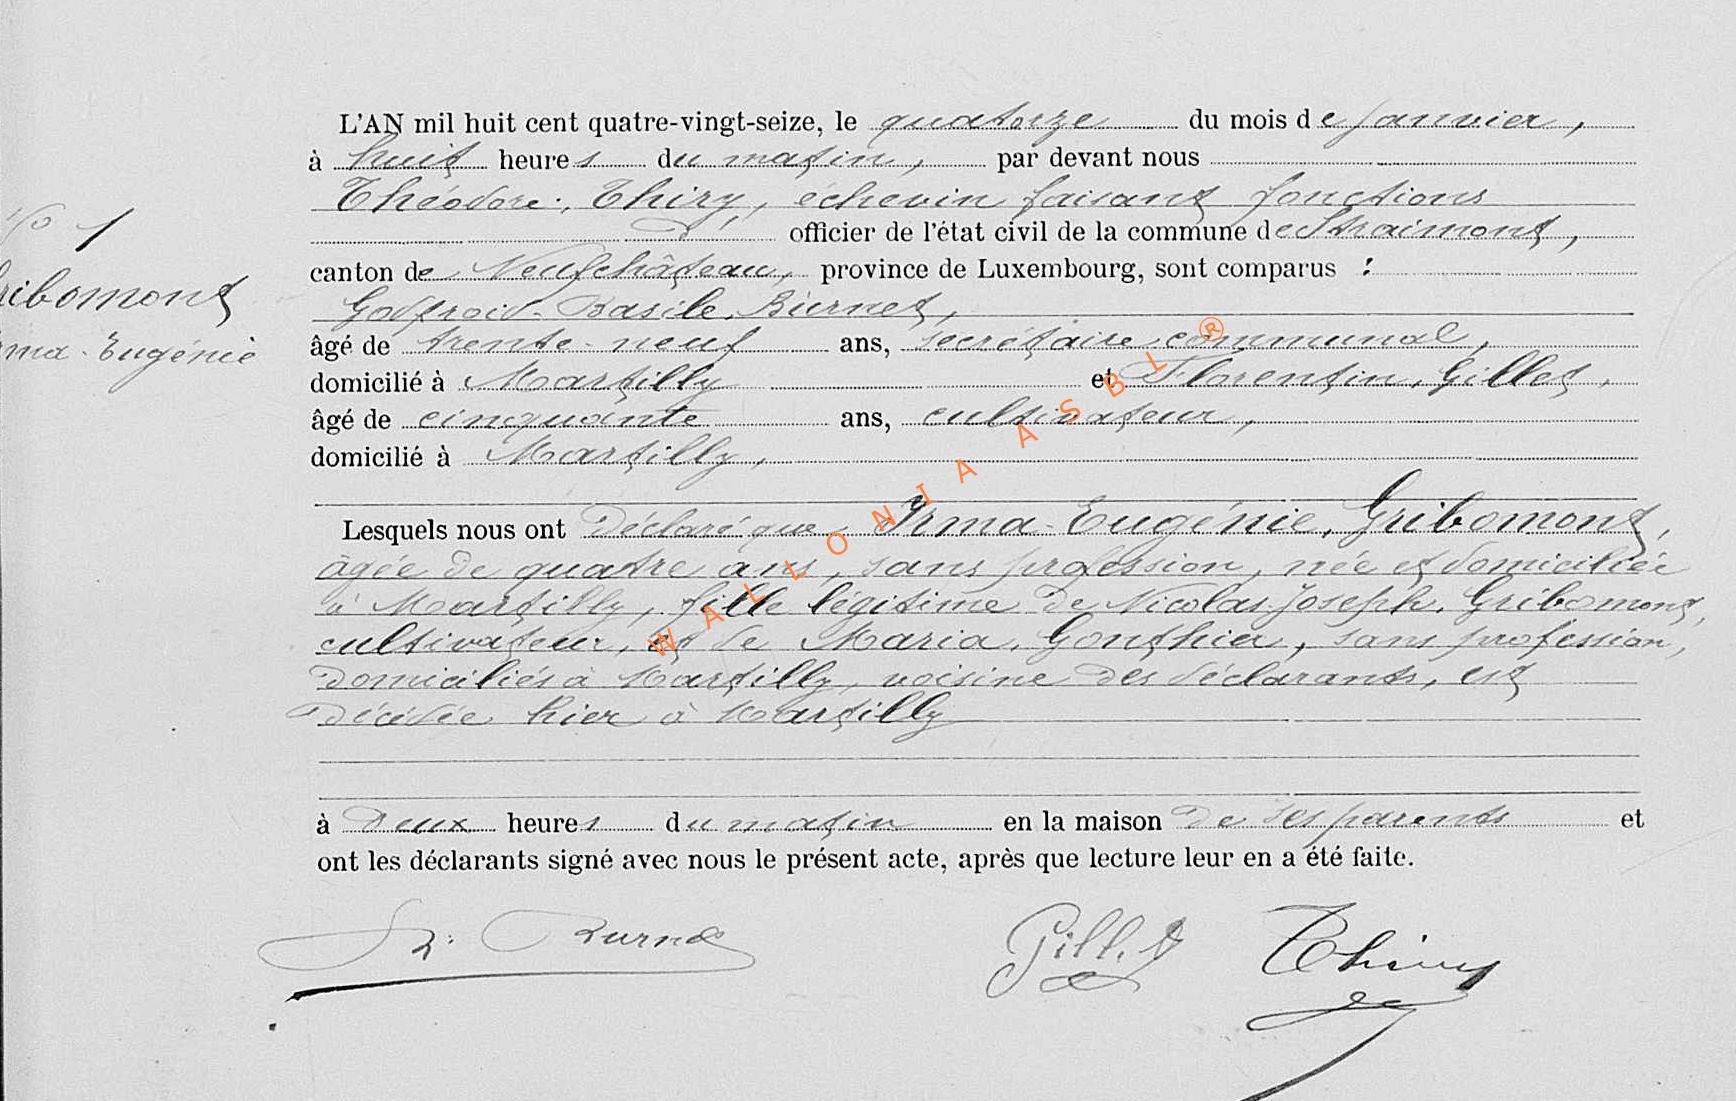 L'AN mil huit cent quatre-vingt-seize, le quatorze du mois de janvier,
à huit heures du matin, par devant nous
Théodore, Thiry, échevin faisant fonctions
N° 1
d' officier de l'état civil de la commune de Straimont,
canton de Neufchâteau, province de Luxembourg, sont comparus :
ribomont
Godfroid-Basile, Burnet,
rma-Eugénie
âgé de trente-neuf ans, secrétaire communal,
domicilié à Martilly et Florentin, Gillet,
âgé de cinquante ans, cultivateur,
domicilié à Martilly,
Lesquels nous ont déclaré que Irma-Eugénie, Gribomont,
âgée de quatre ans, sans profession, née et domiciliée
à Martilly, fille légitime de Nicolas-Joseph, Gribomont,
cultivateur, et de Maria, Gonthier, sans profession,
domiciliés à Martilly, voisine des déclarants, est
décédée hier à Martilly
à deux heures du matin en la maison de ses parents et
ont les déclarants signé avec nous le présent acte, après que lecture leur en a été faite.
Burnet Gillet Thiry
WALLONIA ASBL ®